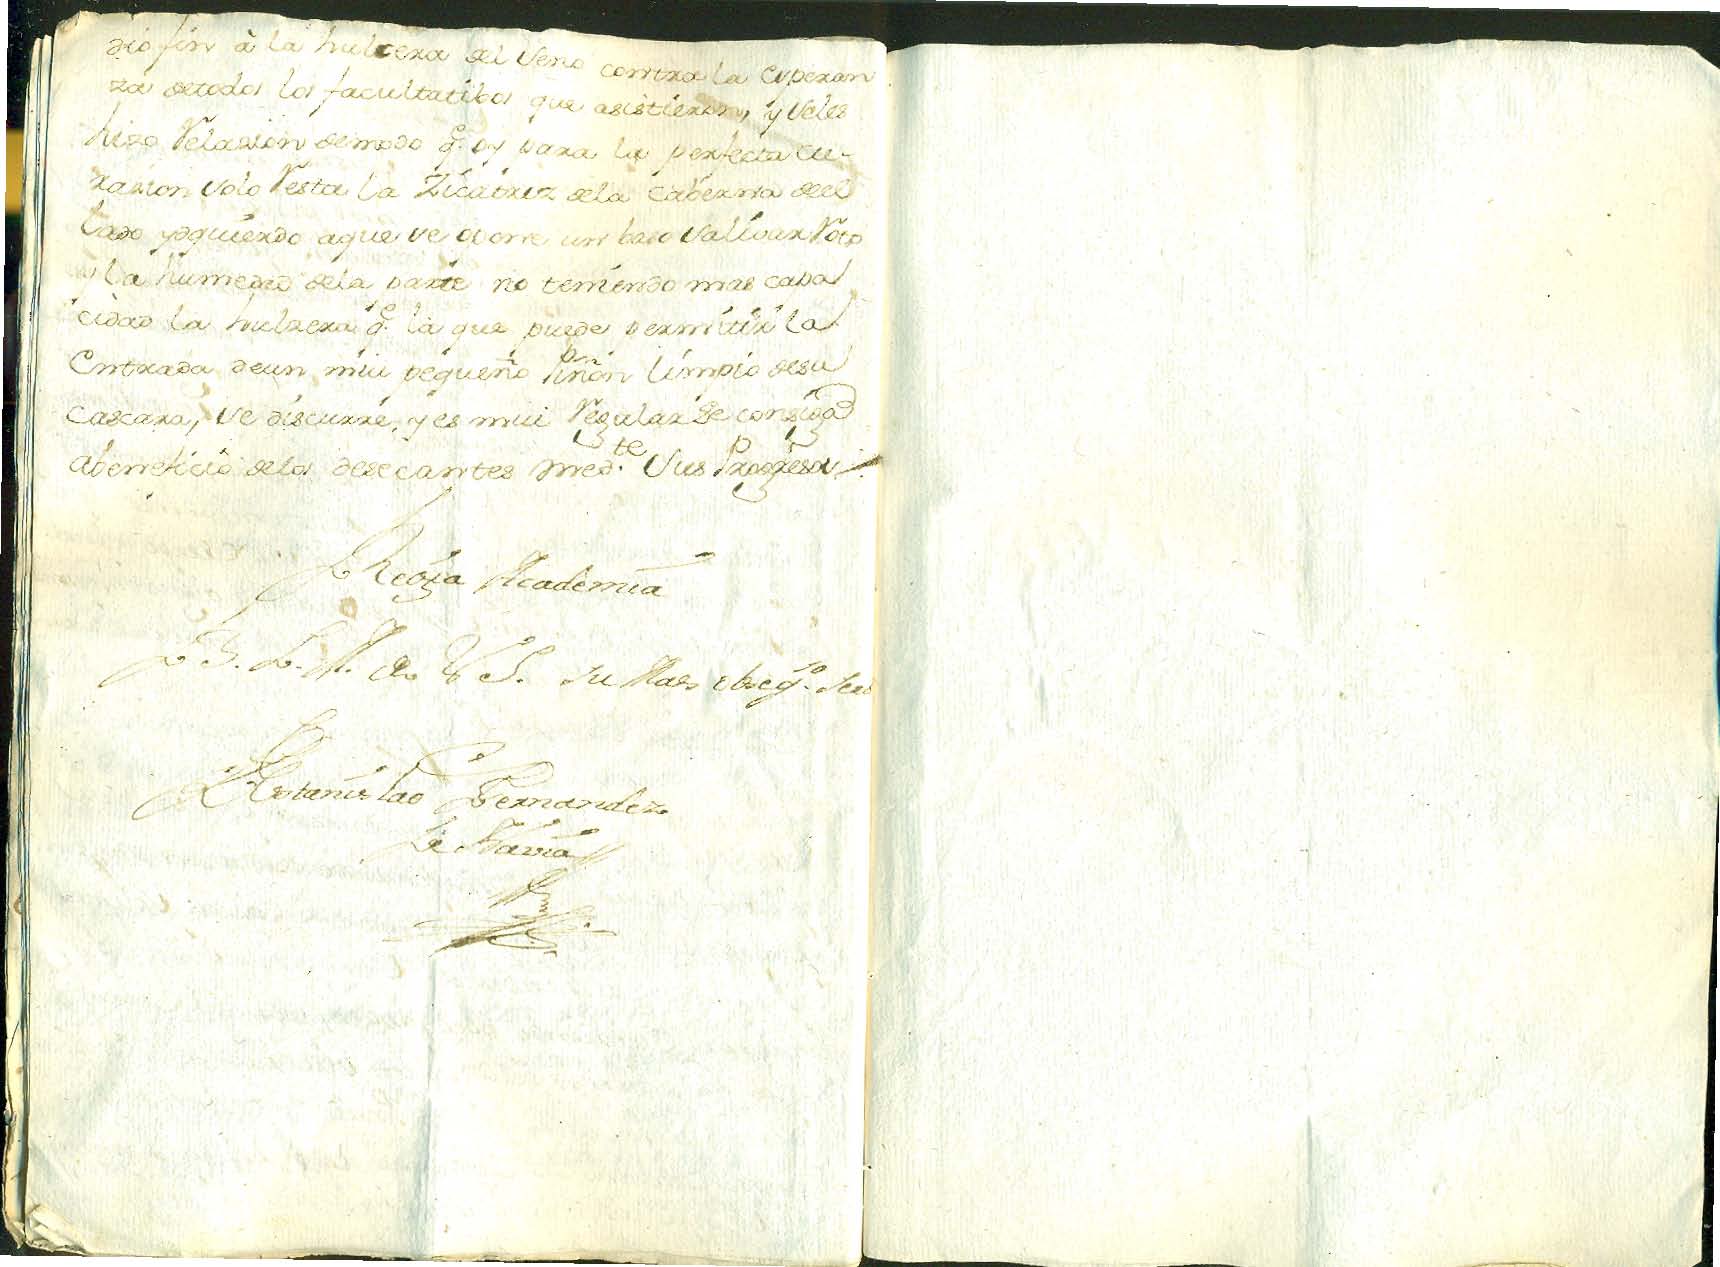 dió fin â la hulcera del Seno contra la esperan
za detodos los facultatibos que asistieron, y seles
hizo Relazion demodo q.e oy para la perfecta cu-
razion solo Resta la Zicatriz dela caberna del
lado ysquierdo aque se opone un baso salibar Roto
y la humedad dela parte no teniendo mas capa
cidad la hulzera q.e la que puede permitir la
Entrada deun mui pequeño Piñon limpio desu
cascara, se discurre, y es mui Regular se consiga
abeneficio delos desecantes med.te sus Progresos
Regia Academia
B. L. M. de V S. su Mas obseq.o Ser
Estanislao Fernandez
de Navia